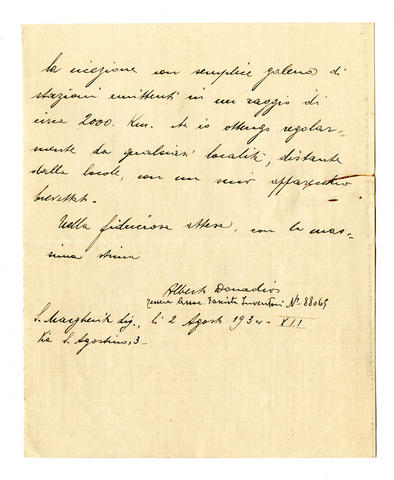 la ricezione con semplice galena di
stazioni emittenti in un raggio di
circa 2000. Km. io ottengo regolar-
mente da qualsiasi località, distante
dalle locale, con un mio apparecchio
brevettato.
Nella fiduciosa attesa, con la mas-
sima stima
Alberto Donadio
tessera Assoc. Fascista Inventori N° 88065
S. Margherita Lig., li 2 Agosto 1934 - XII
Via S. Agostino, 3 -